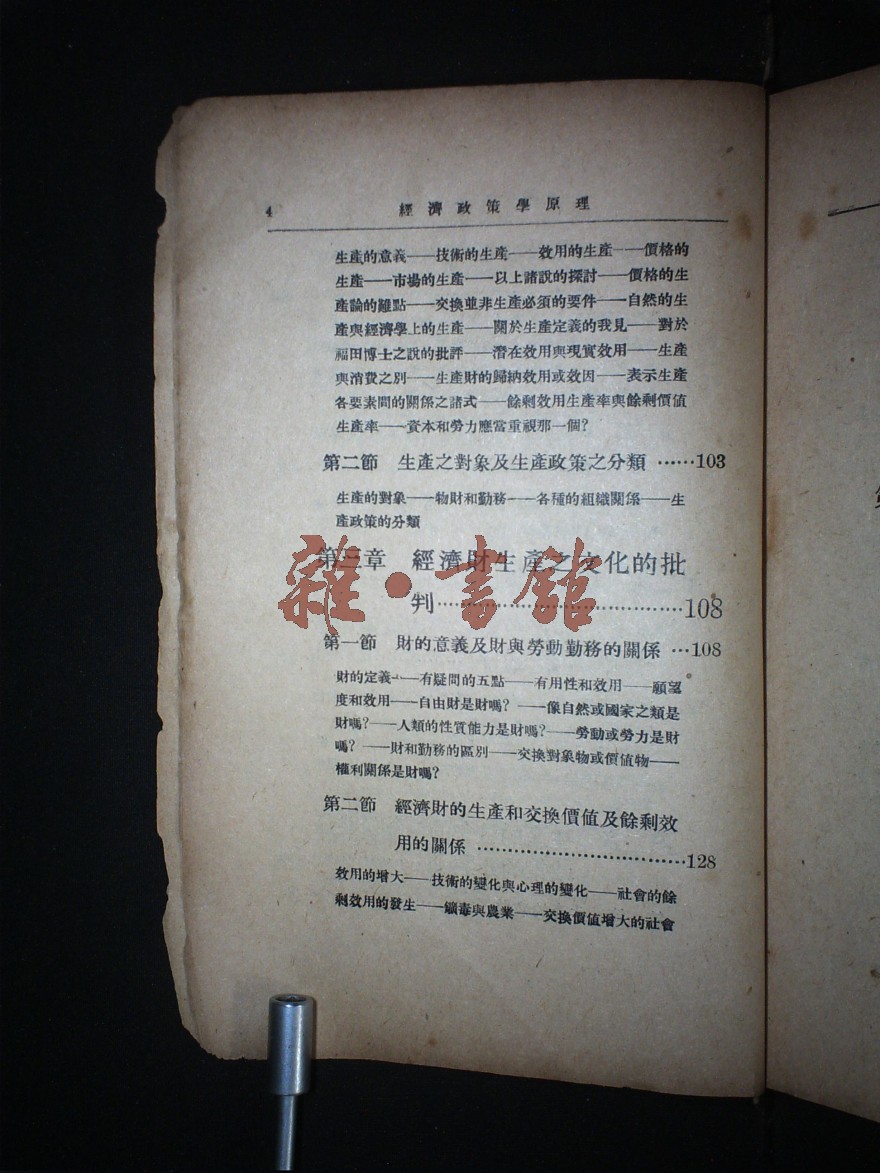 4 經濟政策學原理
生產的意義——技術的生產——效用的生產——價格的
生產——市場的生產——以上諸說的探討——價格的生
產論的難點——交換並非生產必須的要件——自然的生
產與經濟學上的生產——關於生產定義的我見——對於
福田博士之說的批評——潛在效用與現實效用——生產
與消費之別——生產財的歸納效用或效因——表示生產
各要素間的關係之諸式——餘剩效用生產率與餘剩價值
生產率——資本和勞力應當重視那一個?
第二節 生產之對象及生產政策之分類 ……103
生產的對象——物財和勤務——各種的組織關係——生
產政策的分類
第三章 經濟財生產之文化的批
判……………………………………108
第一節 財的意義及財與勞動勤務的關係 …108
財的定義——有疑問的五點——有用性和效用——願望
度和效用——自由財是財嗎?——像自然或國家之類是
財嗎?——人類的性質能力是財嗎?——勞動或勞力是財
嗎?——財和勤務的區別——交換對象物或價值物——
權利關係是財嗎?
第二節 經濟財的生產和交換價值及餘剩效
用的關係 ……………………………128
效用的增大——技術的變化與心理的變化——社會的餘
剩效用的發生——鑛毒與農業——交換價值增大的社會
雜·書館